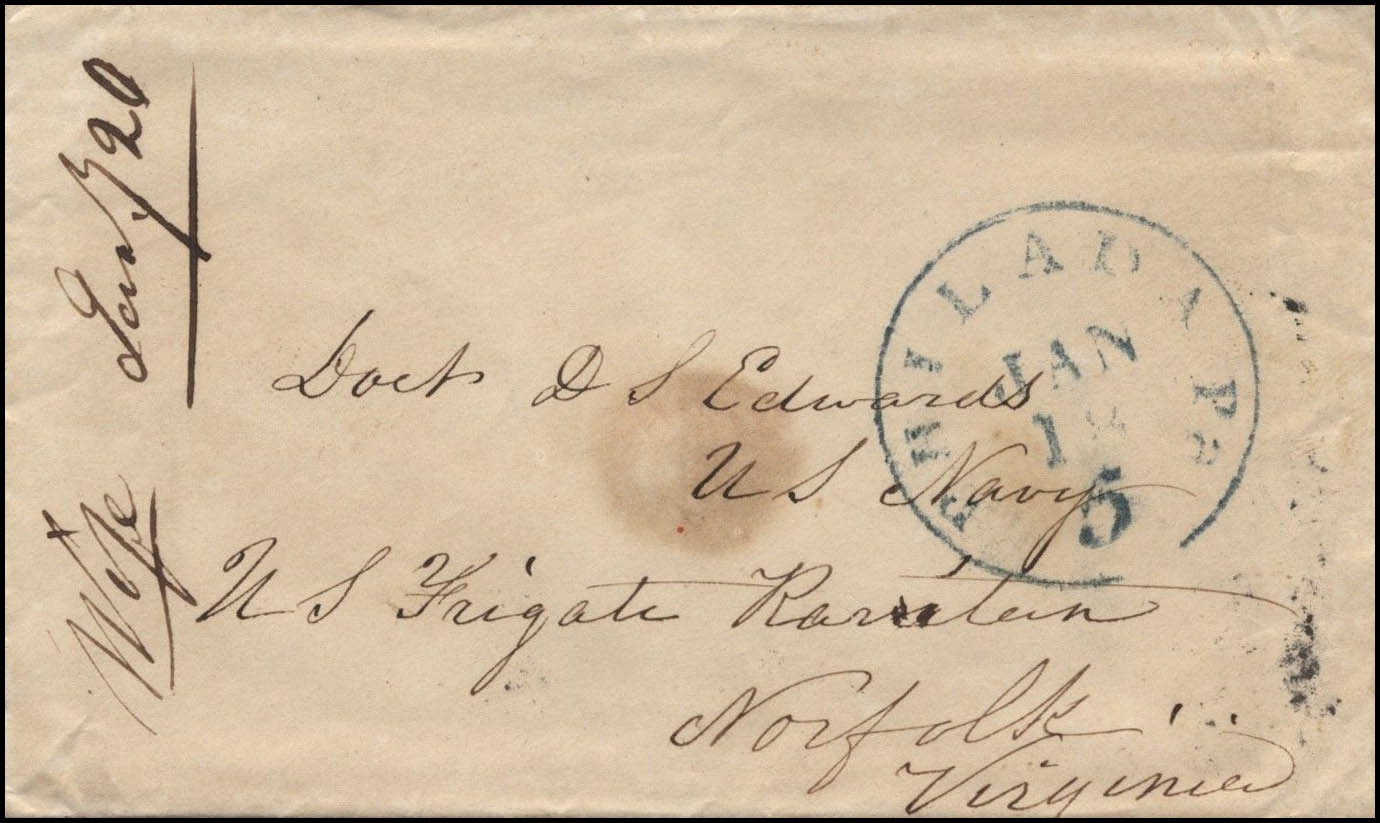 Wife Jany 20
PHILADA Pa
JAN
5
Doct D S Edwards
U S Navy
U S Frigate Raritan
Norfolk
Virginia